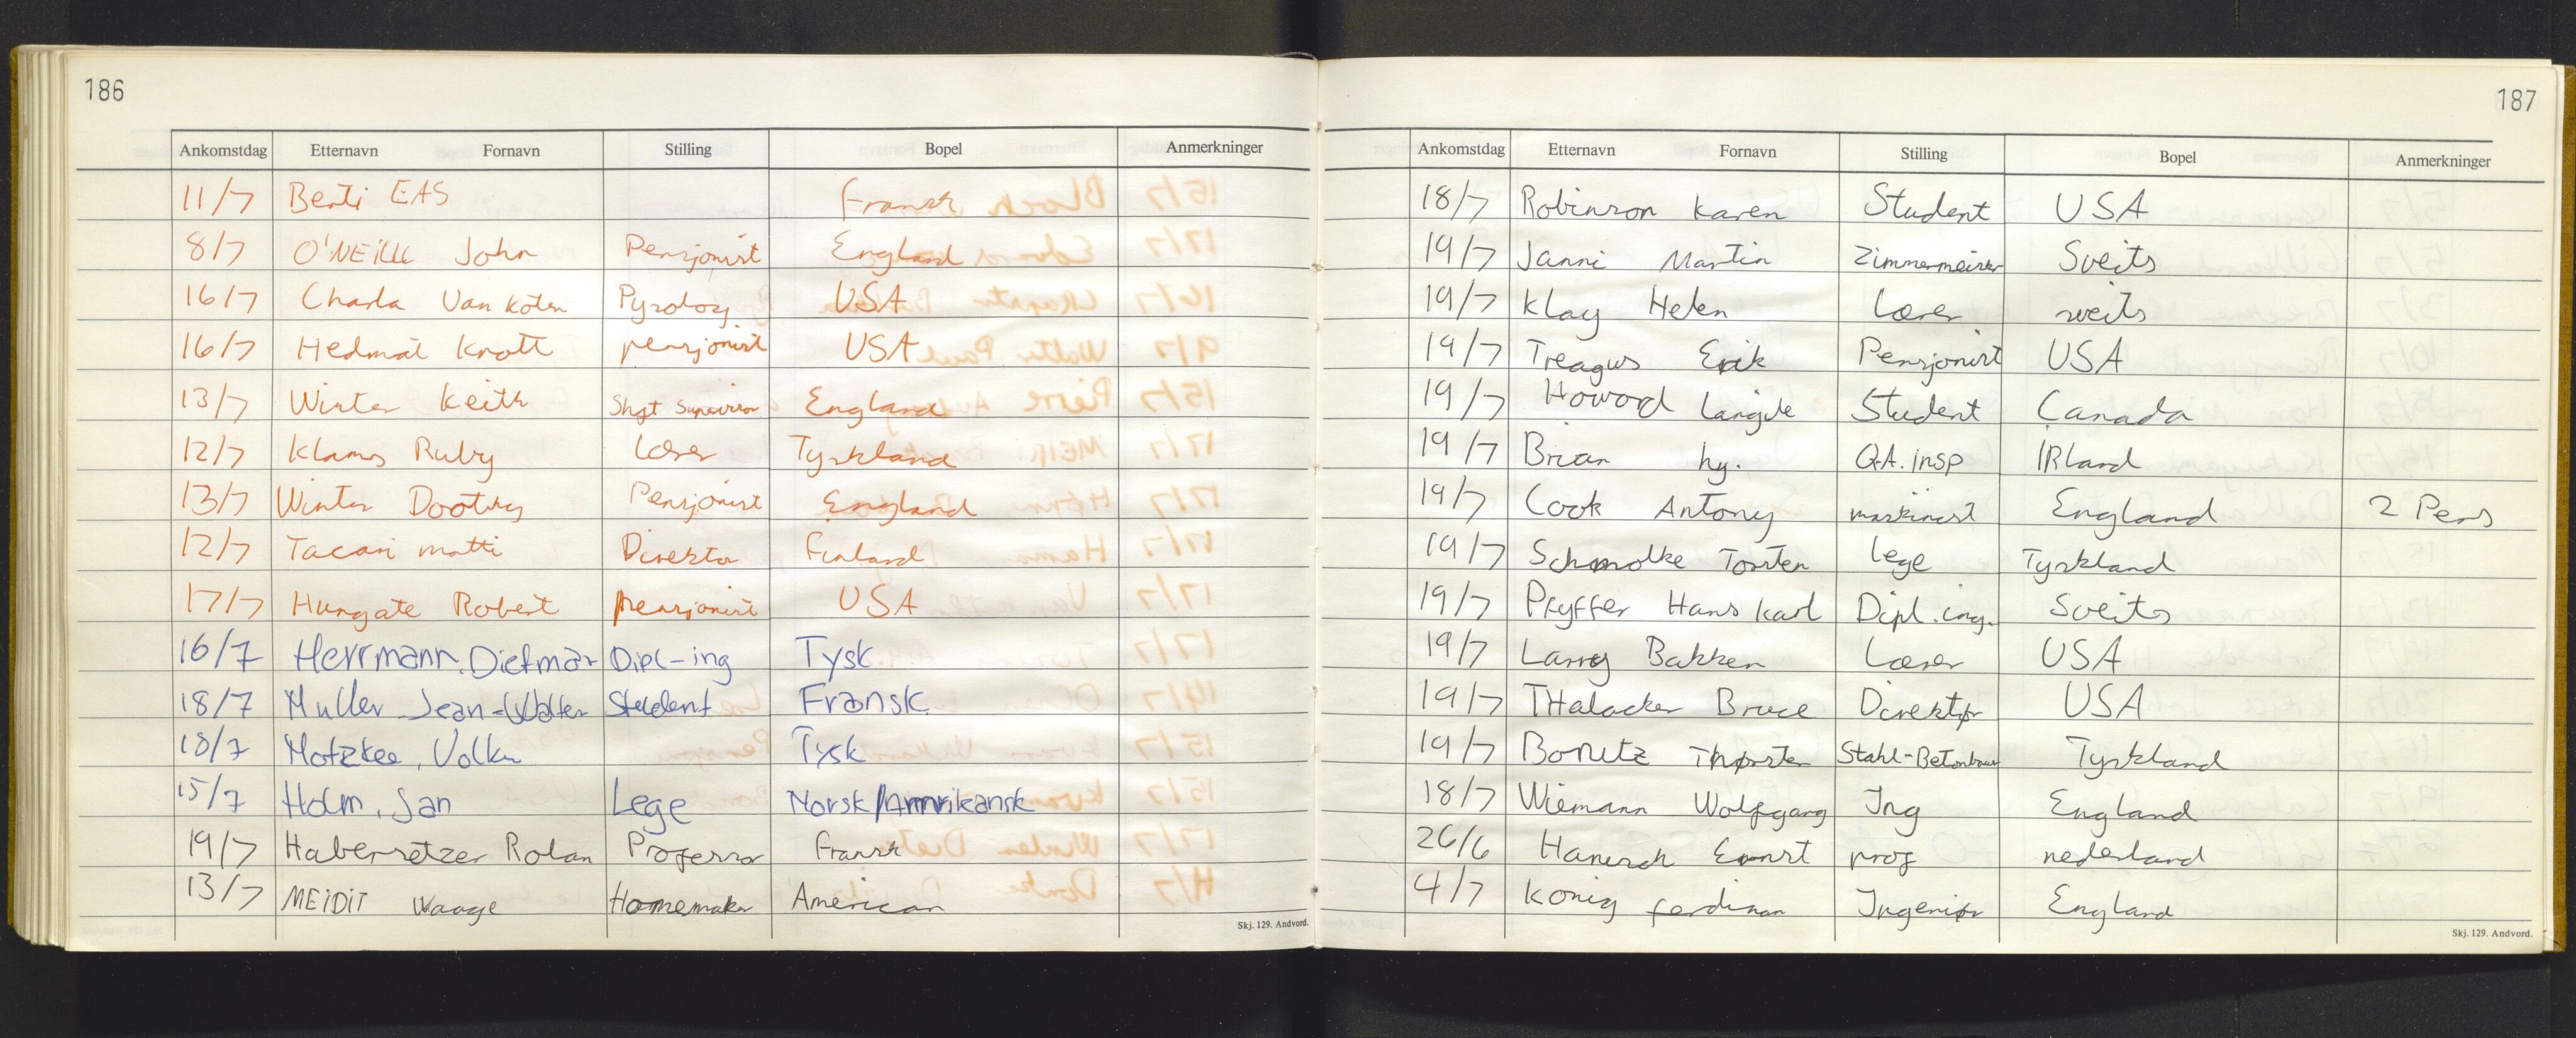 186
Ankomstdag Etternavn Fornavn Stilling Bopel Anmerkninger
11/7 Berti EAS Fransk
8/7 O'NEiLL John Pensjonist England
16/7 Charla Van Koten USA
16/7 Hedmat Knott pensjonist USA
13/7 Winter Keith England
12/7 Klams Ruby Lærer Tyskland
13/7 Winter Pensjonist England
12/7 Tacari matti Direktør Finland
17/7 Hungate Robert pensjonist USA
16/7 Herrmann, Dietmar Dipl-ing Tysk
18/7 Muller Jean-Walter Student Fransk
18/7 Motzkee, Volker Tysk
15/7 Holm, Jan Lege Norsk/Amrikansk
19/7 Habersetzer Rolan Professor Fransk
13/7 MEiDiT Waage Homemaker American
Skj. 129. Andvord.
187
Ankomstdag Etternavn Fornavn Stilling Bopel Anmerkninger
18/7 Robinson Karen Student USA
19/7 Janni Martin Zimmermeister Sveits
19/7 Klay Helen Lærer sveits
19/7 Treagus Erik Pensjonist USA
19/7 Howord Student Canada
19/7 Brian hy. QA. insp IRland
19/7 Cook Antony maskinist England 2 Pers
19/7 Schmolke Torsten lege Tyskland
19/7 Pfyffer Hans karl Dipl. ing. Sveits
19/7 Larry Bakken Lærer USA
19/7 THalacker Bruce Direktør USA
19/7 Bonitz Thorsten Stahl-Betonbauer Tyskland
18/7 Wiemann Wolfgang Ing England
26/6 Hanisch Ernst prof nederland
4/7 König ferdinan Ingeniør England
Skj. 129. Andvord.